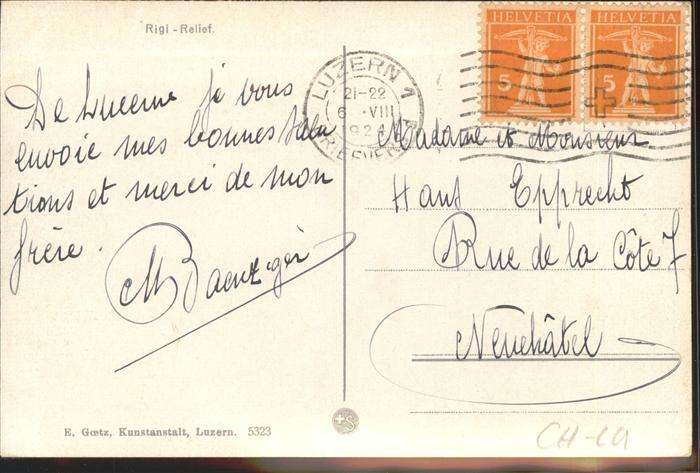 Rigi - Relief.
De Lucerne je vous
envoie mes bonnes saluta
tions et merci de mon
frère.
M Baenziger
HELVETIA
5
HELVETIA
5
LUZERN 1
21-22
6. VIII
BRIEFVER
Madame et Monsieur
Hans Epprecht
Rue de la Côte 7
Neuchâtel
E. Gœtz, Kunstanstalt, Luzern. 5323
CH-LU